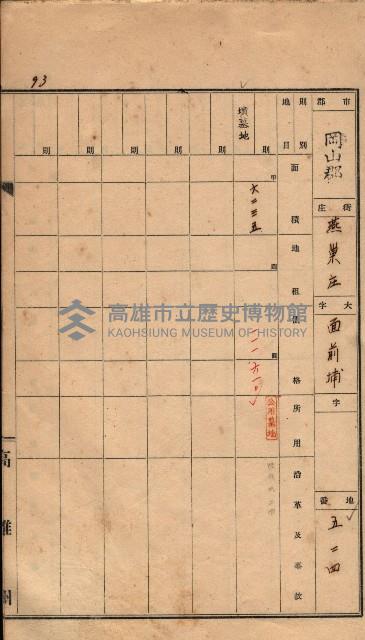 93
市
郡
岡山郡
街
庄
燕巢庄
大字
面前埔
字
地番
五二四
則別
地目
面積
地租
價格
所用
沿革及事故
墳墓地
則
則
則
則
則
則
甲
六二三五
公用墓地
高雄州
高雄市立歷史博物館
KAOHSIUNG MUSEUM OF HISTORY